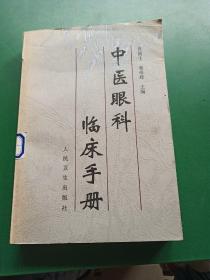 主编
中医眼科
临床手册
人民卫生出版社